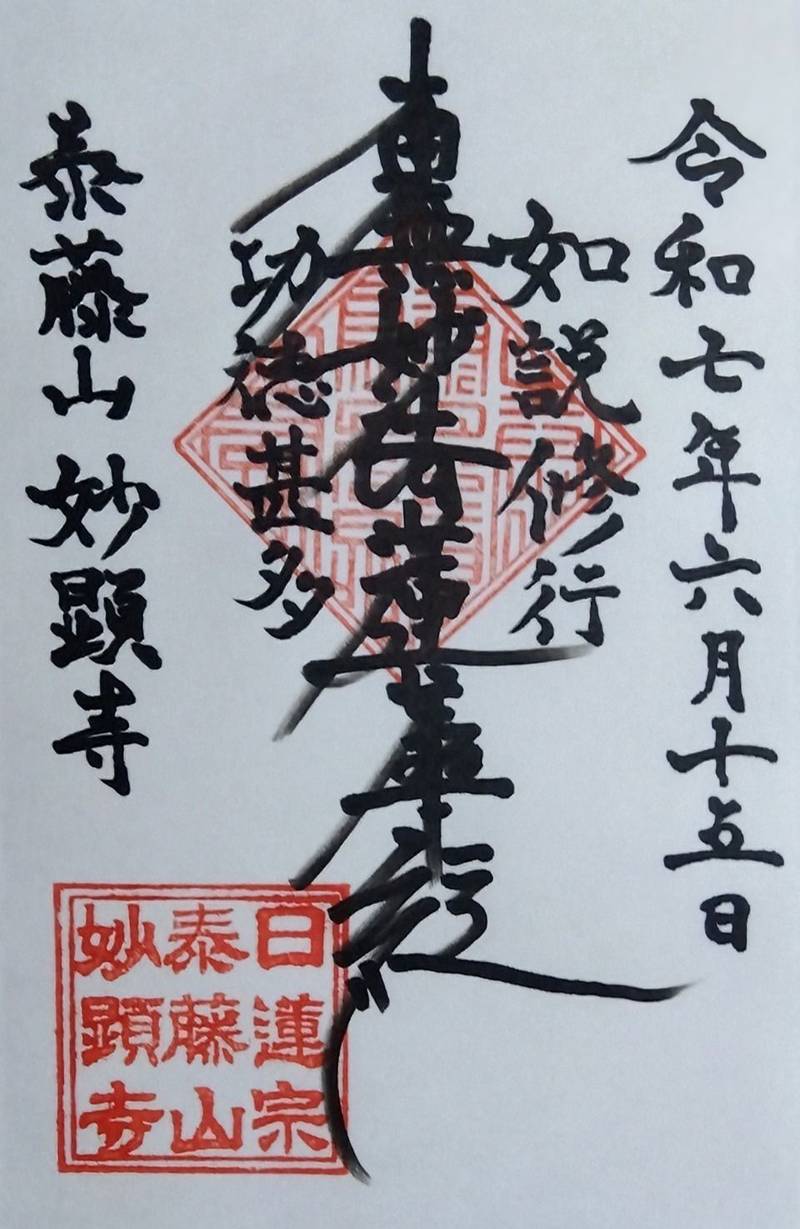 令和七年六月十五日
如説修行
南無妙法蓮華経
功徳甚多
泰藤山 妙顕寺
日蓮宗
泰藤山
妙顕寺